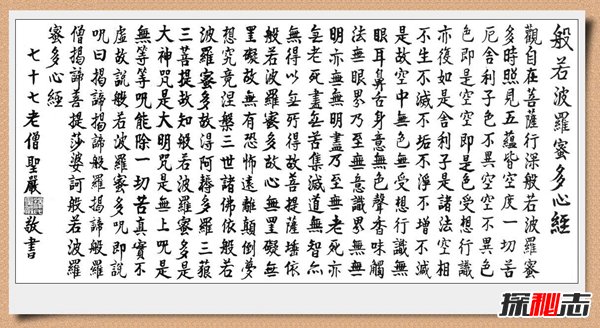 般若波羅蜜多心經
觀自在菩薩行深般若波羅蜜
多時照見五蘊皆空度一切苦
厄舍利子色不異空空不異色
色即是空空即是色受想行識
亦復如是舍利子是諸法空相
不生不滅不垢不淨不增不減
是故空中無色無受想行識無
眼耳鼻舌身意無色聲香味觸
法無眼界乃至無意識界無無
明亦無無明盡乃至無老死亦
無老死盡無苦集滅道無智亦
無得以無所得故菩提薩埵依
般若波羅蜜多故心無罣礙無
罣礙故無有恐怖遠離顛倒夢
想究竟涅槃三世諸佛依般若
波羅蜜多故得阿耨多羅三藐
三菩提故知般若波羅蜜多是
大神咒是大明咒是無上咒是
無等等咒能除一切苦真實不
虛故說般若波羅蜜多咒即說
咒曰揭諦揭諦般羅揭諦般羅
僧揭諦菩提莎婆訶般若波羅
蜜多心經
七十七老僧聖嚴敬書
探秘志